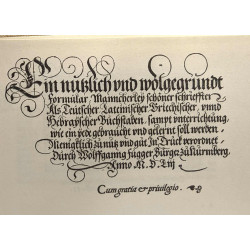 Ein nützlich vnd wolgegründt
Formular Manncherley schöner schriefften
Als Teütscher Lateinischer Griechischer vnnd
Hebrayscher Büchstaben, sampt vnterrichtung,
wie ein yede gebraucht vnd gelernt soll werden.
Menigklich zu nutz vnd gut Jn Truck verordnet
Durch Wolffganng Fugger, Burger zu Nürmberg.
Anno M. D. Liij
Cum gratia et priuilegio.